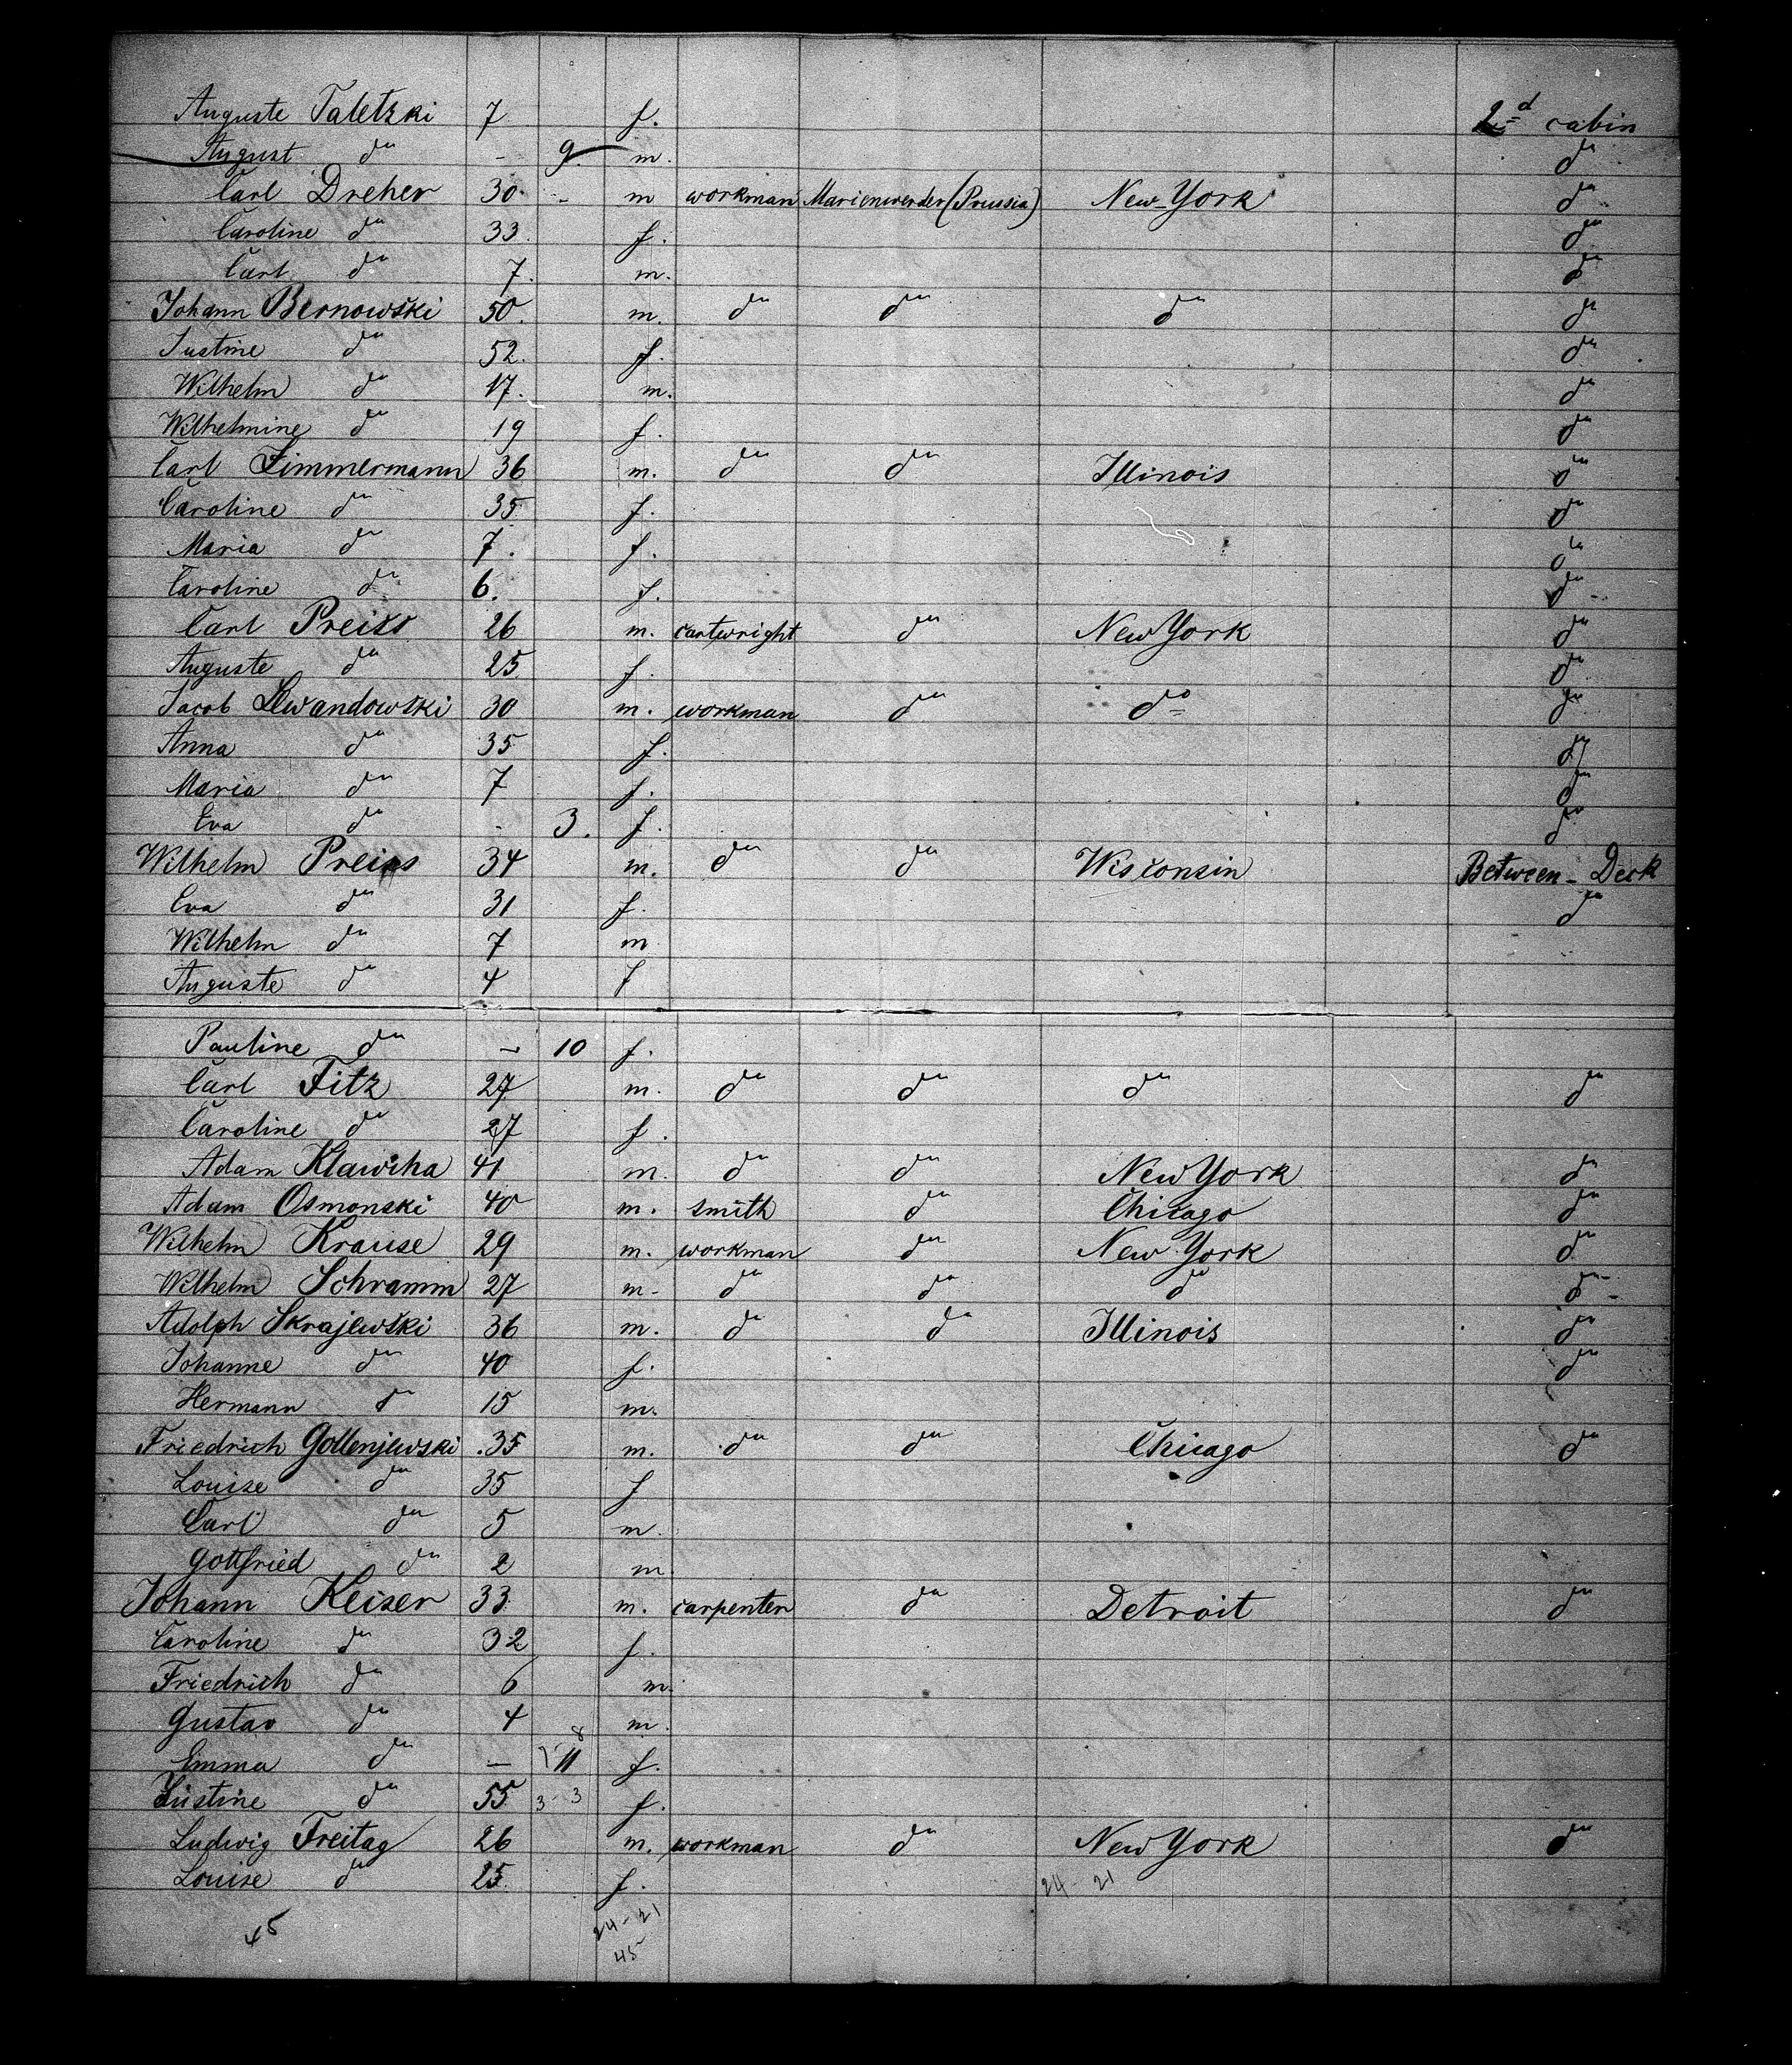 Auguste Taletzki 7 f. 2d cabin
August do - 9. m. do
Carl Dreher 30 - m workman Marienwerder (Prussia) New-York do
Caroline do 33. f. do
Carl do 7. m. do
Johann Bernowski 50. m. do do do do
Justine do 52. f. do
Wilhelm do 17. m. do
Wilhelmine do 19 f. do
Carl Zimmermann 36 m. do do Illinois do
Caroline do 35 f. do
Maria do 7. f. do
Caroline do 6. f. do
Carl Preiss 26 m. cartwright do New York do
Auguste do 25 f. do
Jacob Lewandowski 30 m. workman do do do
Anna do 35 f. do
Maria do 7 f. do
Eva do - 3. f. do
Wilhelm Preiss 34 m. do do Wisconsin Between-Deck
Eva do 31 f. do
Wilhelm do 7 m
Auguste do 4 f
Pauline do - 10 f.
Carl Fitz 27 m. do do do do
Caroline do 27 f.
Adam Klawiha 41 m. do do New York do
Adam Osmonski 40 m. smith do Chicago do
Wilhelm Krause 29 m. workman do New York do
Wilhelm Schramm 27 m. do do do do
Adolph Skrajewski 36 m. do do Illinois do
Johanne do 40 f. do
Hermann do 15 m.
Friedrich Gollenjewski 35 m. do do Chicago do
Louise do 35 f
Carl do 5 m.
Gottfried do 2 m
Johann Keiser 33 m. carpenter do Detroit do
Caroline do 32 f.
Friedrich do 6 m.
Gustav do 4 m.
Emma do - 11 8 f.
Justine do 55 3-3 f.
Ludwig Freitag 26 m. workman do New York do
Louise do 25 f. 24-21
45 24-21
45